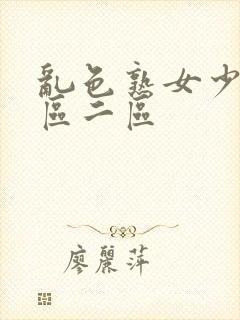 亂色熟女少
區二區
廖麗萍